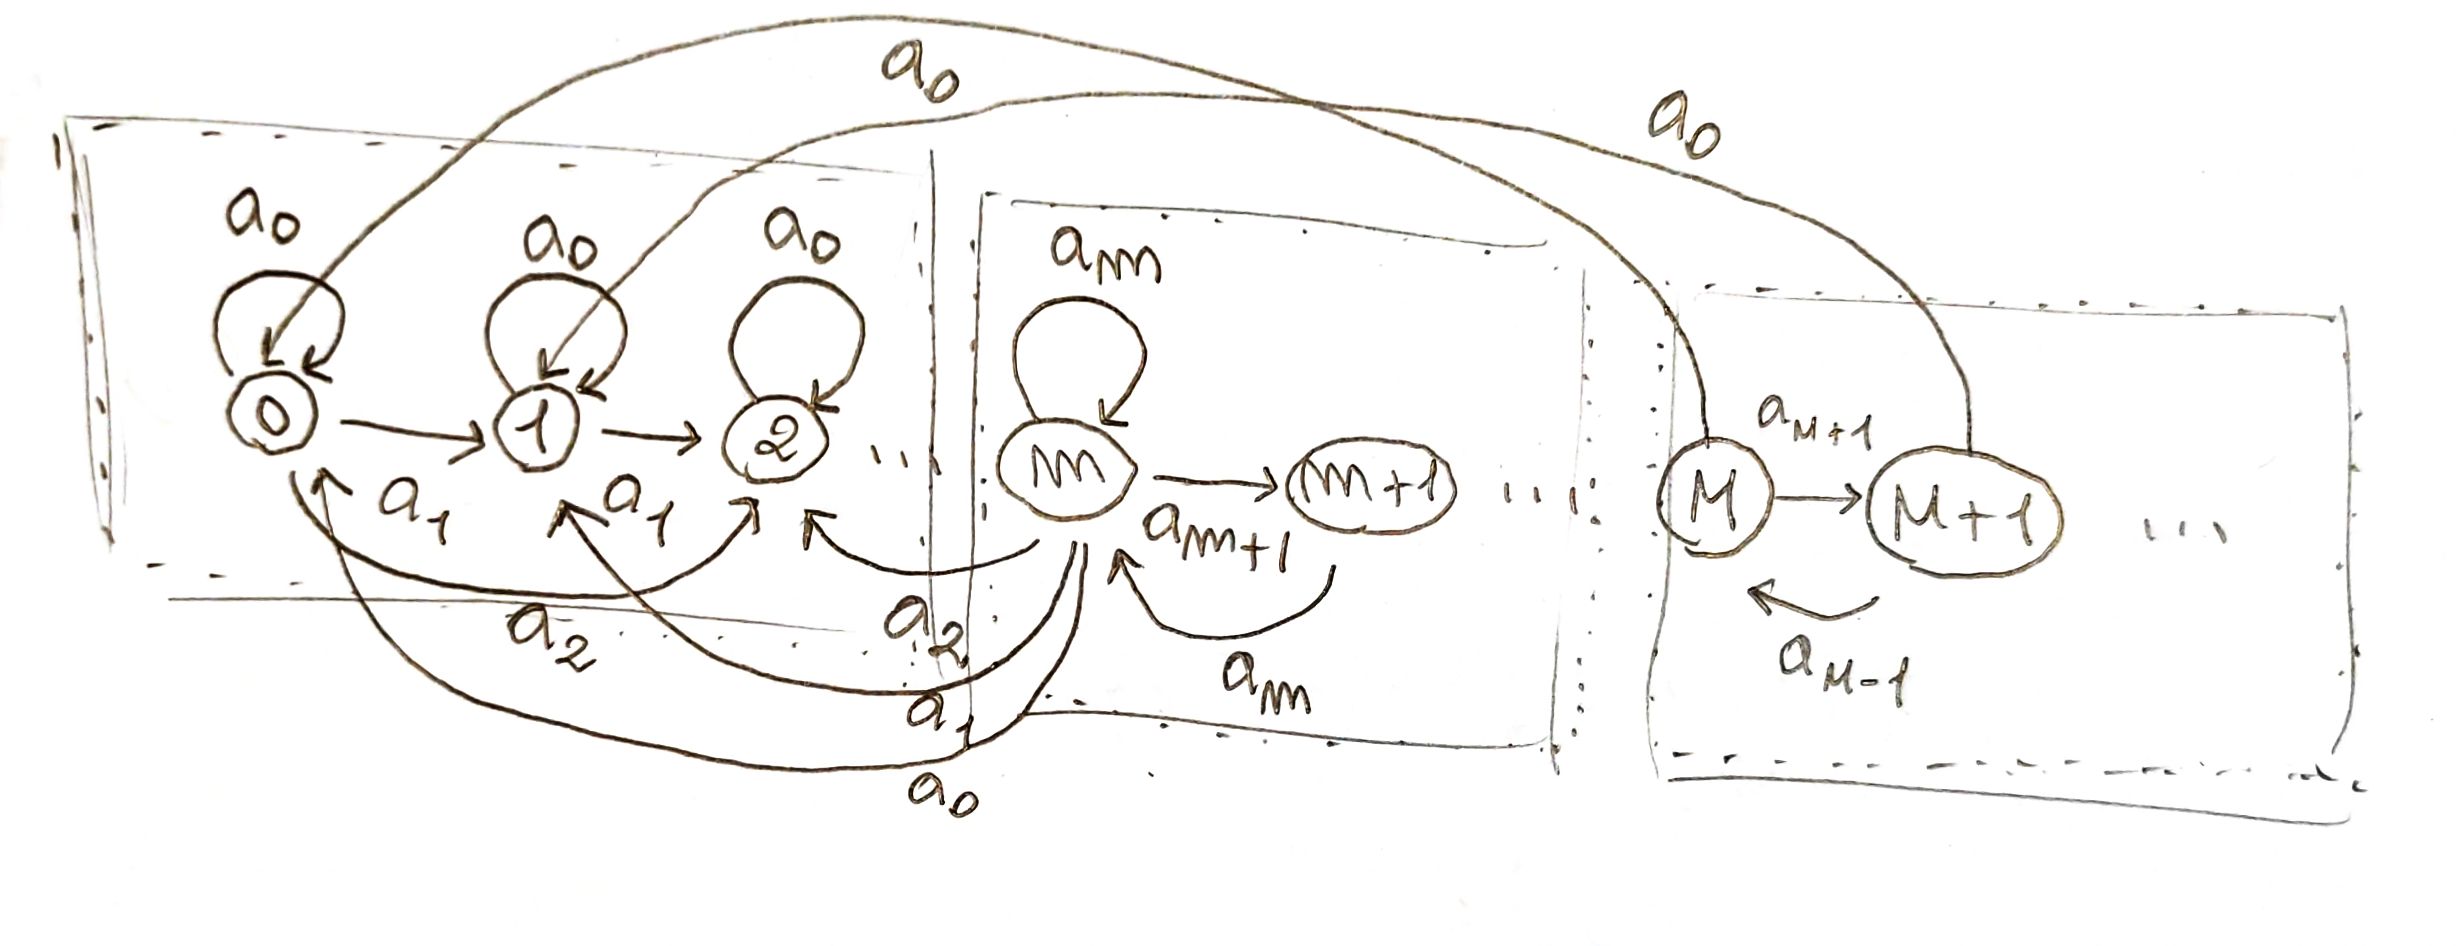 a₀
a₀
a₀ a₀ a₀ aₘ
0 1 2 ... m m+1 ... M M+1 ...
a_{M+1}
a₁ a₁ a_{m+1}
a₂ a₂ aₘ a_{M-1}
a₁
a₀